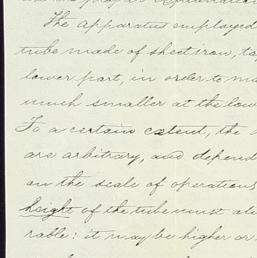 The apparatus employed
tube made of sheet iron, ta
lower part, in order to ma
much smaller at the low
To a certain extent, the
are arbitrary, and depend
on the scale of operations
height of the tube must al
rable: it may be higher or